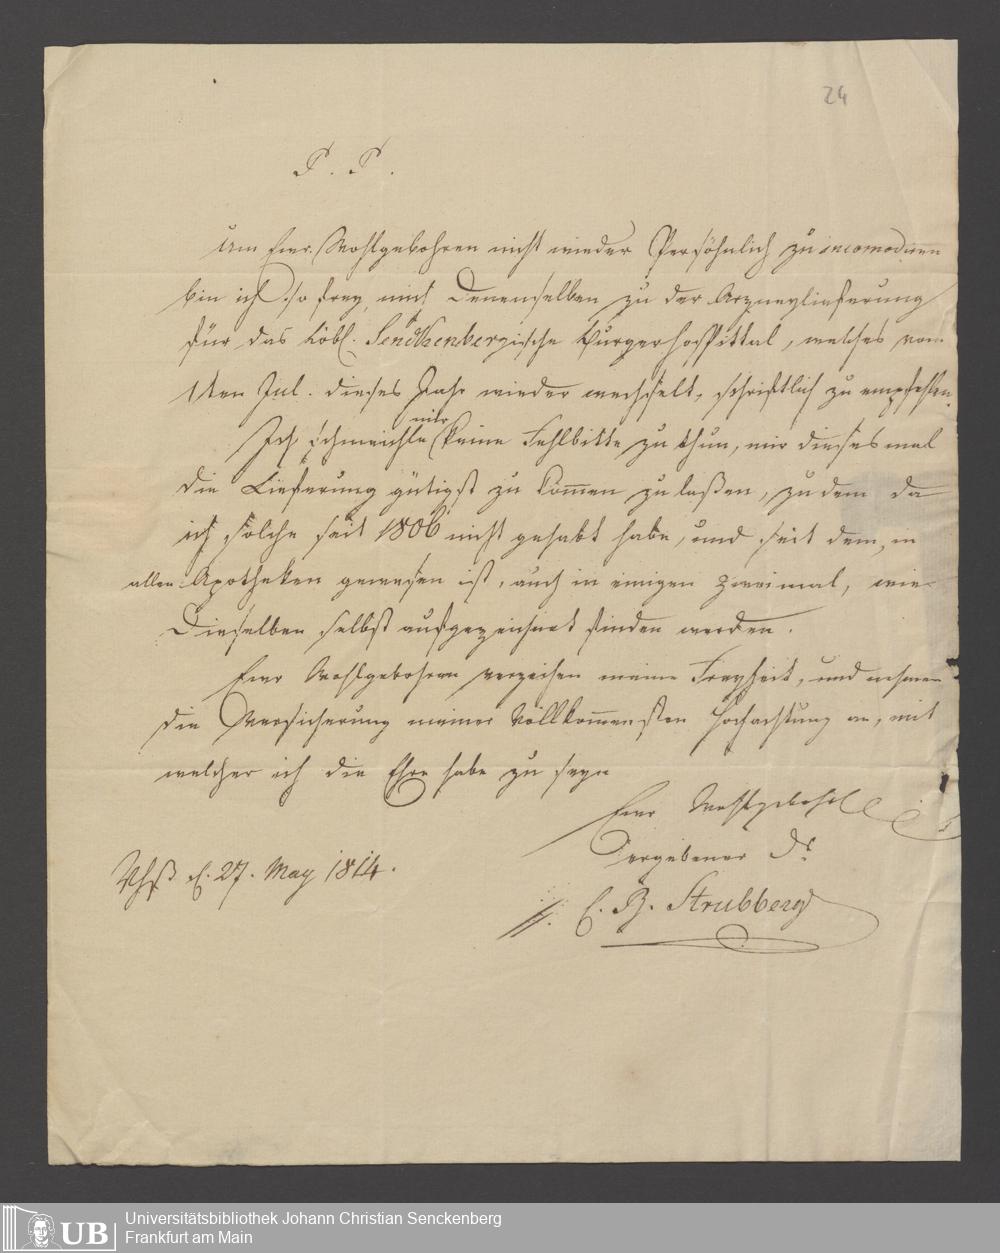 24
P. P.
Um Ewr. Wohlgebohren nicht wieder Persöhnlich zu incomodiren
bin ich so frey, mich Denenselben zu der Arzneylieferung
für das Löbl. Senckenbergische Burgerhospittal, welches vom
1ten Jul. dieses Jahr wieder wechselt, schriftlich zu empfehlen.
Ich schmeichle mir keine Fehlbitte zu thun, mir dieses mal
die Lieferung gütigst zu kom̄en zu laßen, zu dem da
ich solche seit 1806 nicht gehabt habe, und seit dem, in
allen Apotheken gewesen ist, auch in einigen zweimal, wie
Dieselben selbst aufgezeichnet finden werden.
Ewr Wohlgebohren verzeihen meine Freyheit, und nehmen
die Versicherung meiner Vollkom̄ensten Hochachtung an, mit
welcher ich die Ehre habe zu seyn
Ewr Wohlgebohl
ergebener Dr
Vhß d. 27. May 1814.
C. B. Strubberg
UB
Universitätsbibliothek Johann Christian Senckenberg
Frankfurt am Main